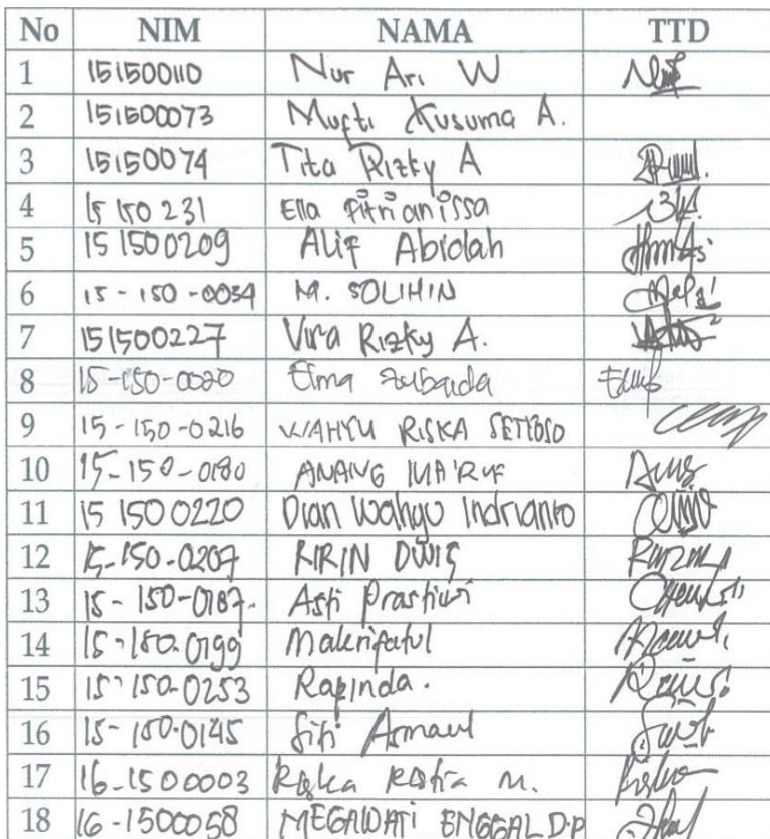 No NIM NAMA TTD
1 151500110 Nur Ari W
2 151500073 Mufti Kusuma A.
3 15150074 Tita Rizky A
4 15 150 231 Ella Fitrianissa
5 15 1500209 Alif Abidah
6 15-150-0034 M. SOLIHIN
7 151500227 Vira Rizky A.
8 15-150-0020 Elma Zubaida
9 15-150-0216 WAHYU RISKA SETIOSO
10 15-150-0180 ANANG MA'RUF
11 15 1500220 Dian Wahyu Indrianto
12 15-150-0207 RIRIN DWI S
13 15-150-0187. Asti Prastiwi
14 15-150.0199 Makrifatul
15 15-150-0253 Rapinda.
16 15-150.0145 Siti Asmaul
17 16-1500003 Riska Ristia M.
18 16-1500058 MEGAWATI ENGGAL D.P